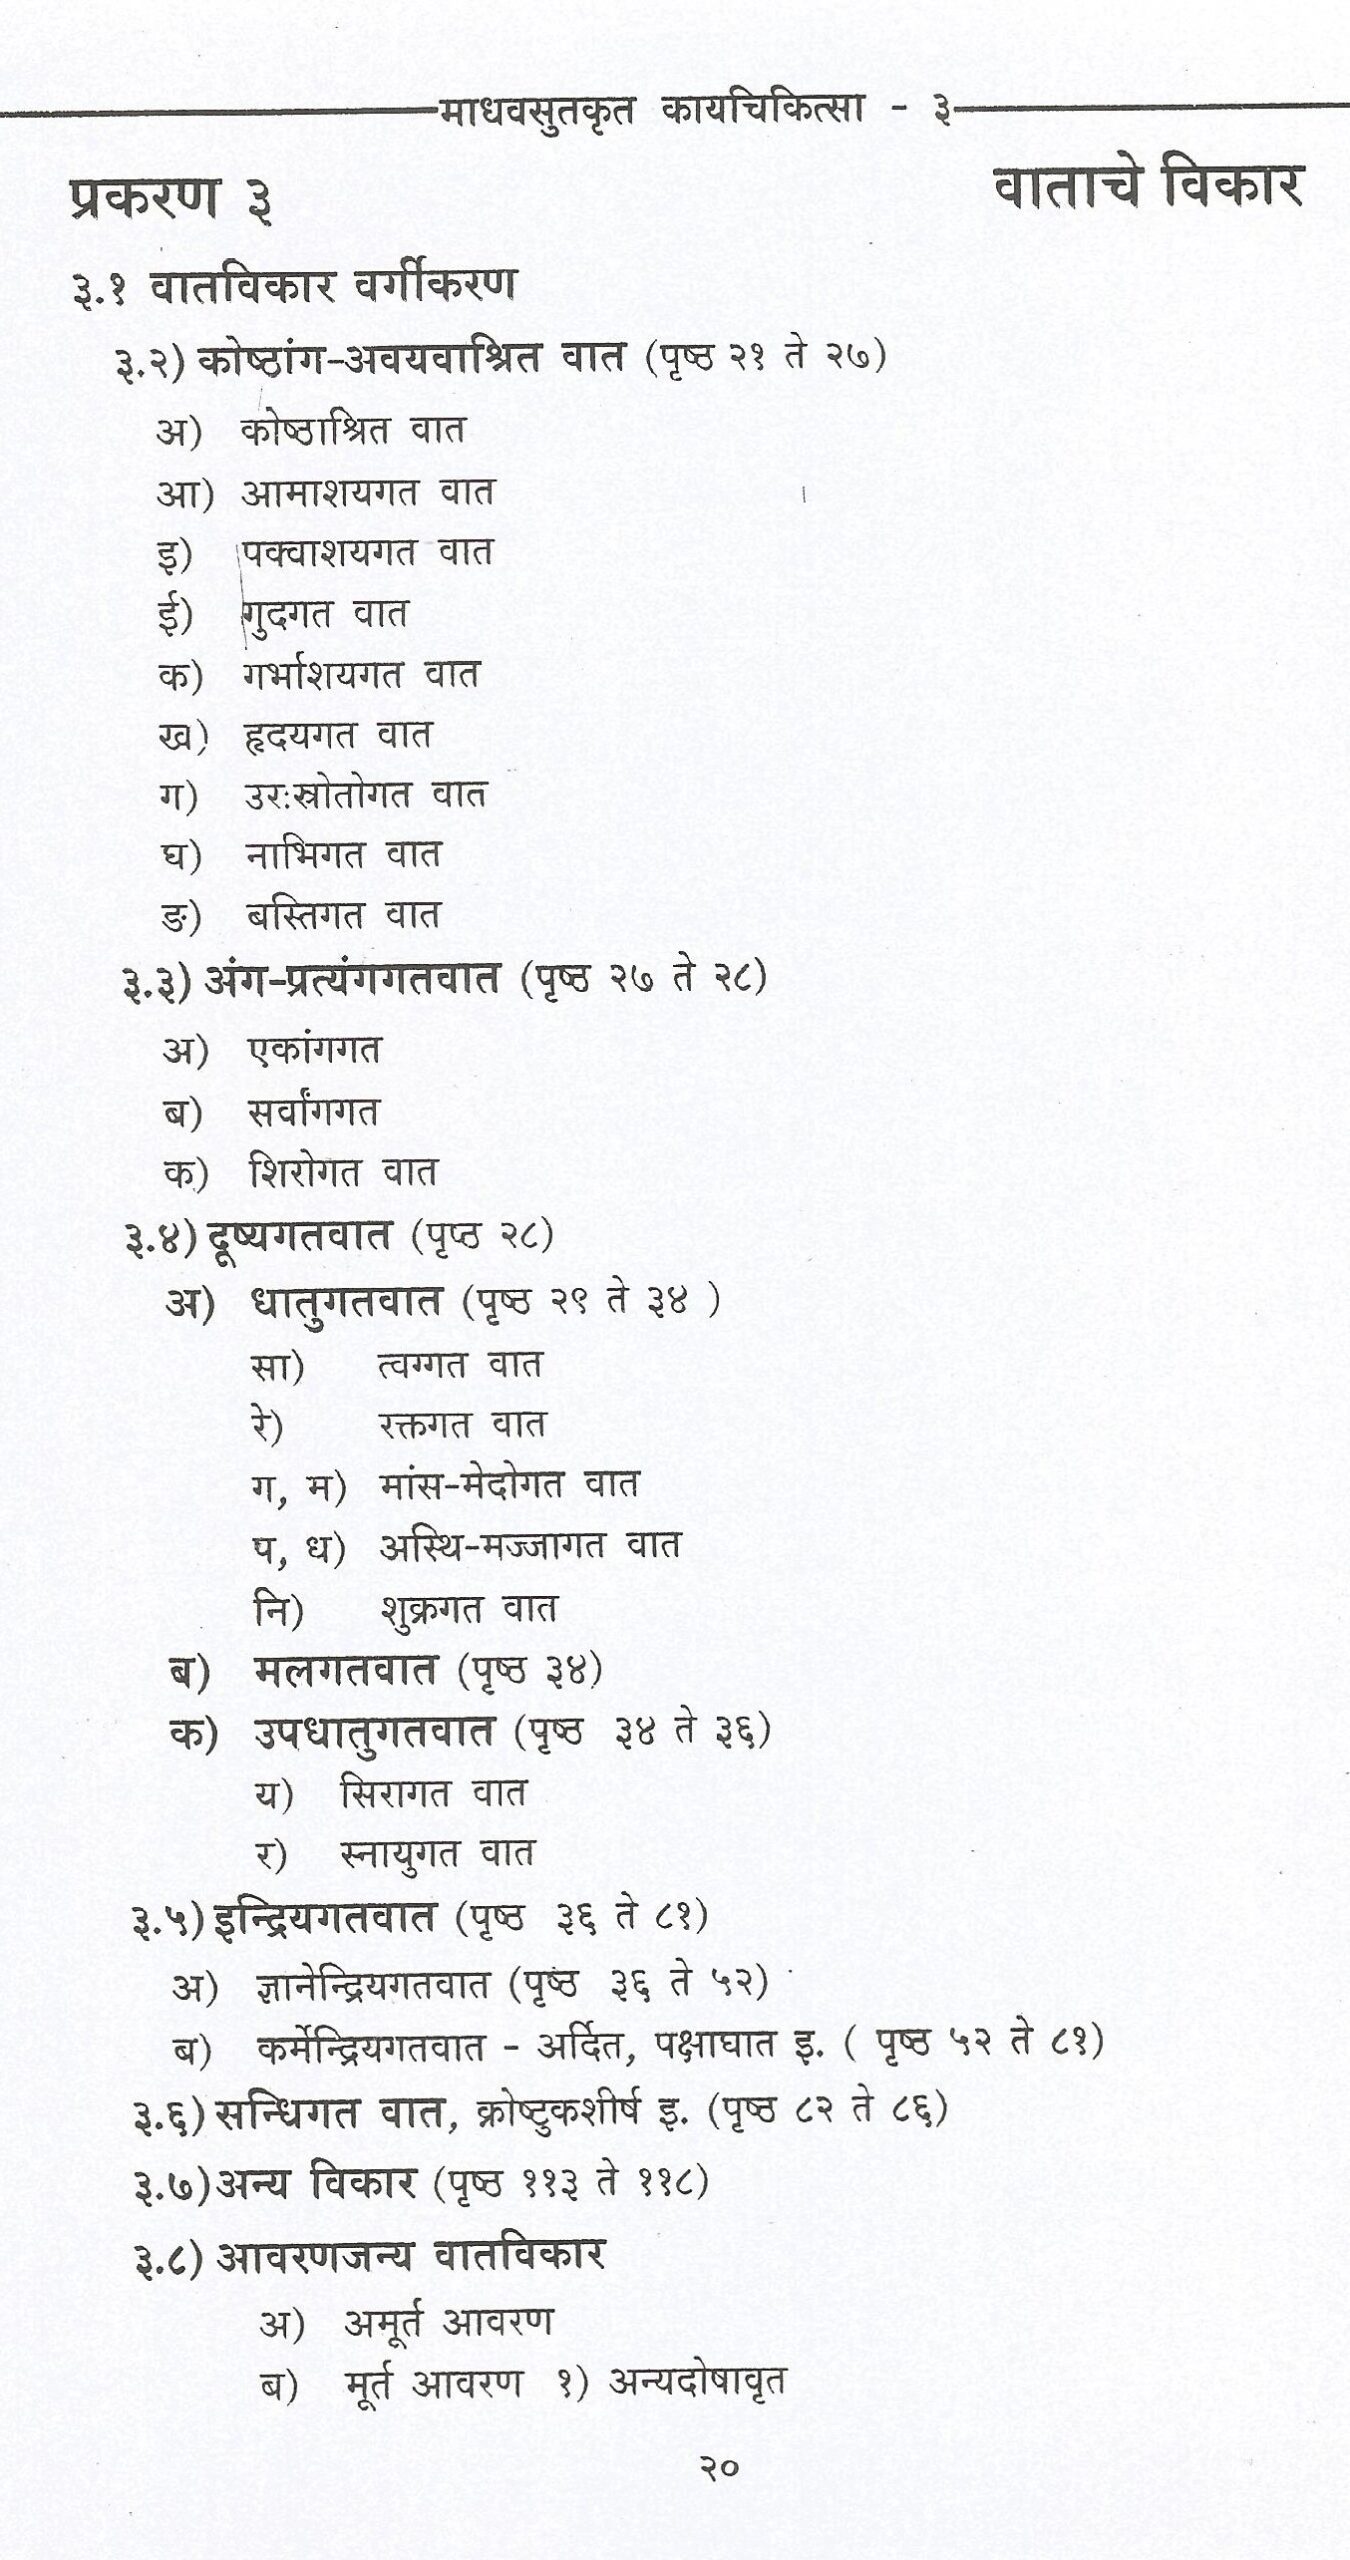 माधवसुतकृत कायचिकित्सा - ३
प्रकरण ३ वाताचे विकार
३.१ वातविकार वर्गीकरण
३.२) कोष्ठांग-अवयवाश्रित वात (पृष्ठ २१ ते २७)
अ) कोष्ठाश्रित वात
आ) आमाशयगत वात
इ) पक्वाशयगत वात
ई) गुदगत वात
क) गर्भाशयगत वात
ख) हृदयगत वात
ग) उरःस्रोतोगत वात
घ) नाभिगत वात
ङ) बस्तिगत वात
३.३) अंग-प्रत्यंगगतवात (पृष्ठ २७ ते २८)
अ) एकांगगत
ब) सर्वांगगत
क) शिरोगत वात
३.४) दूष्यगतवात (पृष्ठ २८)
अ) धातुगतवात (पृष्ठ २९ ते ३४ )
सा) त्वग्गत वात
रे) रक्तगत वात
ग, म) मांस-मेदोगत वात
प, ध) अस्थि-मज्जागत वात
नि) शुक्रगत वात
ब) मलगतवात (पृष्ठ ३४)
क) उपधातुगतवात (पृष्ठ ३४ ते ३६)
य) सिरागत वात
र) स्नायुगत वात
३.५) इन्द्रियगतवात (पृष्ठ ३६ ते ८१)
अ) ज्ञानेन्द्रियगतवात (पृष्ठ ३६ ते ५२)
ब) कर्मेन्द्रियगतवात - अर्दित, पक्षाघात इ. ( पृष्ठ ५२ ते ८१)
३.६) सन्धिगत वात, क्रोष्टुकशीर्ष इ. (पृष्ठ ८२ ते ८६)
३.७) अन्य विकार (पृष्ठ ११३ ते ११८)
३.८) आवरणजन्य वातविकार
अ) अमूर्त आवरण
ब) मूर्त आवरण १) अन्यदोषावृत
२०